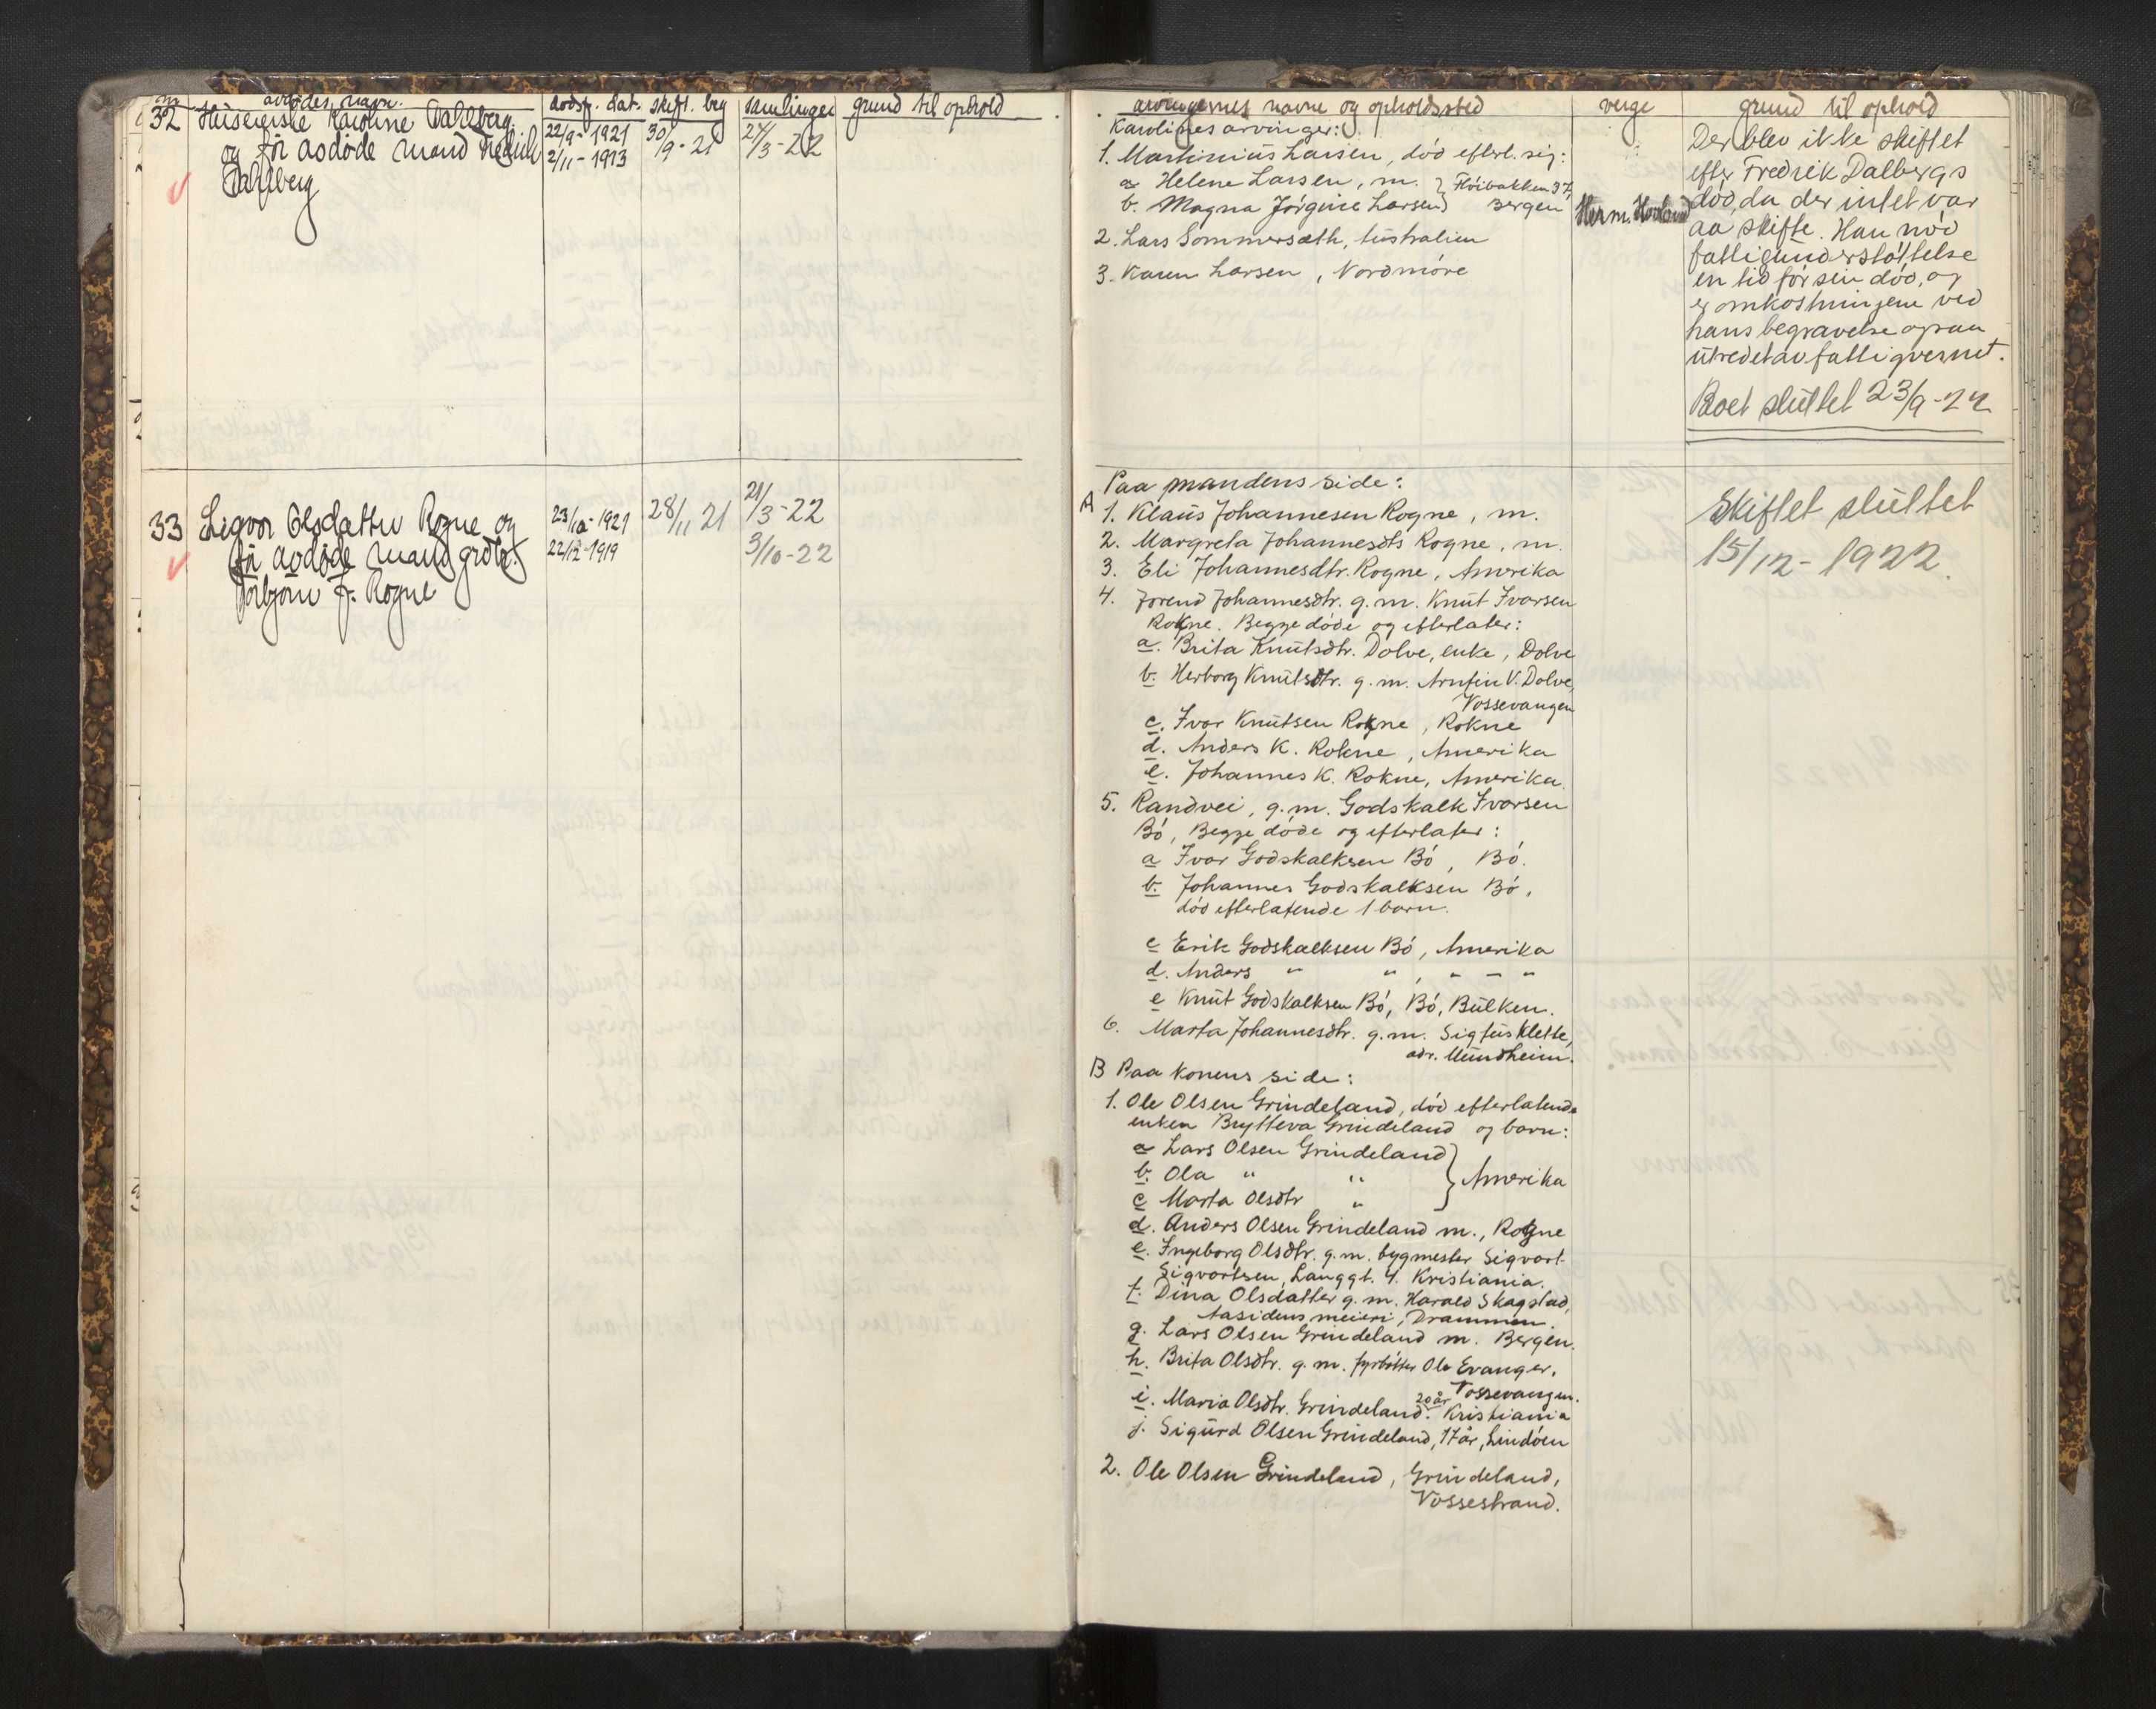 nr. avdødes navn. dødsf. dat. skift. beg samlinger grund til ophold
32 Huseierske Karoline Dahlberg 22/9-1921 30/9-21 24/3-22
og før avdøde mand Fredrik 2/11-1913
Dahlberg
33 Ligvor Olsdatter Rogne og 23/10-1921 28/11 21 21/3-22
før avdøde mand grdbr. 22/12-1919 3/10-22
Torbjørn J. Rogne
arvingernes navne og opholdssted verge grund til ophold
Karolines arvinger:
1. Martinius Larsen, død efterl. sig:
a Helene Larsen, m. } Fløibakken 37,
b. Magna Jørgine Larsen } Bergen Herm. Hovland
2. Lars Sommersæth, Australien
3. Karen Larsen, Nordmøre
Der blev ikke skiftet
efter Fredrik Dalbergs
død, da der intet var
aa skifte. Han nød
fattigunderstøttelse
en tid før sin død, og
er omkostningene ved
hans begravelse ogsaa
utredet av fattigvesnet.
Boet sluttet 23/9-24
A Paa mandens side:
1. Klaus Johannesen Rogne, m.
2. Margreta Johannesdts Rogne, m.
3. Eli Johannesdtr. Rogne, Amerika
4. Jorend Johannesdtr. g.m. Knut Ivarsen
Rokne. Begge døde og efterlater:
a. Brita Knutsdtr. Dolve, enke, Dolve
b. Herborg Knutsdtr. g.m. Arnfin V. Dolve,
Vossevangen
c. Ivar Knutsen Rokne, Rokne
d. Anders K. Rokne, Amerika
e. Johannes K. Rokne, Amerika.
5. Randvei, g.m. Godskalk Ivarsen
Bø, Begge døde og efterlater:
a Ivar Godskalksen Bø, Bø.
b. Johannes Godskalksen Bø,
død efterlatende 1 barn.
c Erik Godskalksen Bø, Amerika
d. Anders " " , " - "
e Knut Godskalksen Bø, Bø, Bulken.
6. Marta Johannesdtr. g.m. Sigfus Klette,
adr. Mundheim.
B Paa konens side:
1. Ole Olsen Grindeland, død efterlatende
enken Brytteva Grindeland og barn:
a Lars Olsen Grindeland }
b. Ola " " } Amerika
c Marta Olsdtr " }
d. Anders Olsen Grindeland m., Rogne
e. Ingeborg Olsdtr. g.m. bygmester Sigvart
Sigvartsen, Langgt. 4. Kristiania.
f. Dina Olsdatter g.m. Harald Skagstad,
Aasidens meieri, Drammen.
g. Lars Olsen Grindeland m. Bergen.
h. Brita Olsdtr. g.m. fyrbøter Ole Evanger,
Vossevangen.
i. Maria Olsdtr. Grindeland 20 år, Kristiania
j. Sigurd Olsen Grindeland, 17 år, Lindøen
2. Ole Olsen Grindeland, Grindeland,
Vossestrand.
Skiftet sluttet
15/12-1922.